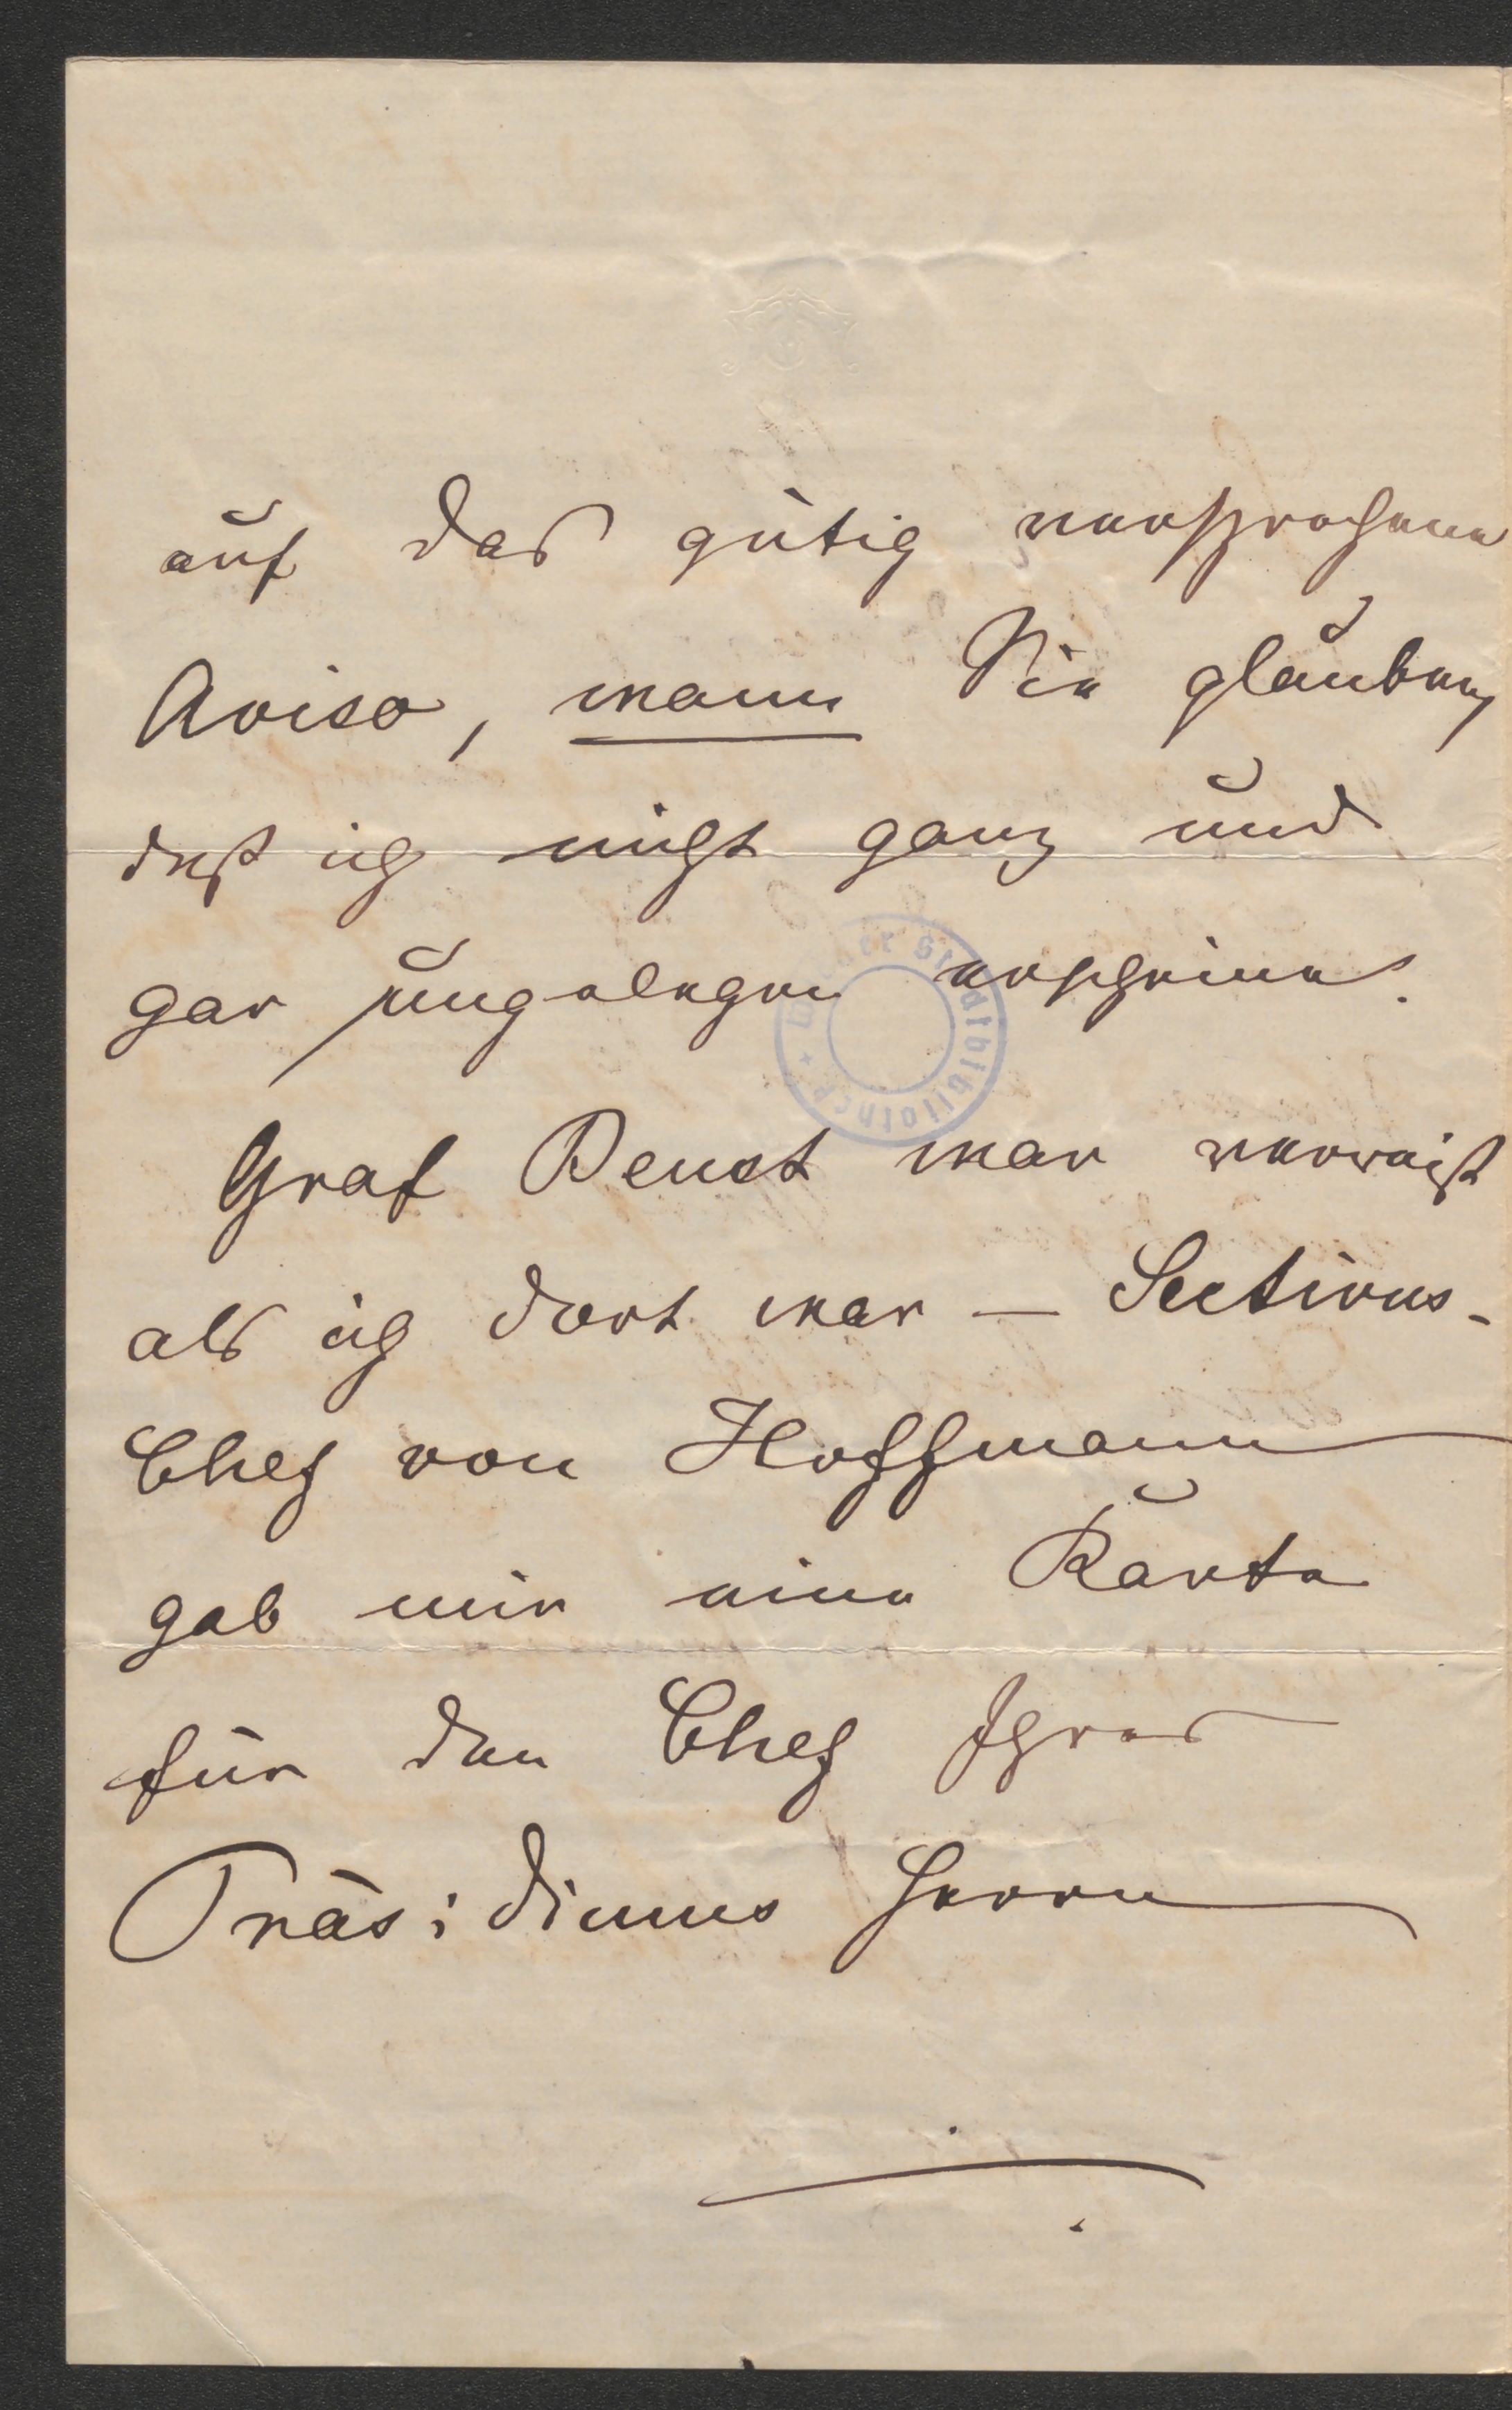 auf das gütig versprochene
Aviso, wann Sie glauben,
daß ich nicht ganz und
gar ungelegen erscheine.
Wiener Stadtbibliothek
Graf Beust war verreist
als ich dort war — Sections-
Chef von Hoffmann
gab mir eine Karte
für den Chef Ihres
Präsidiums Herrn